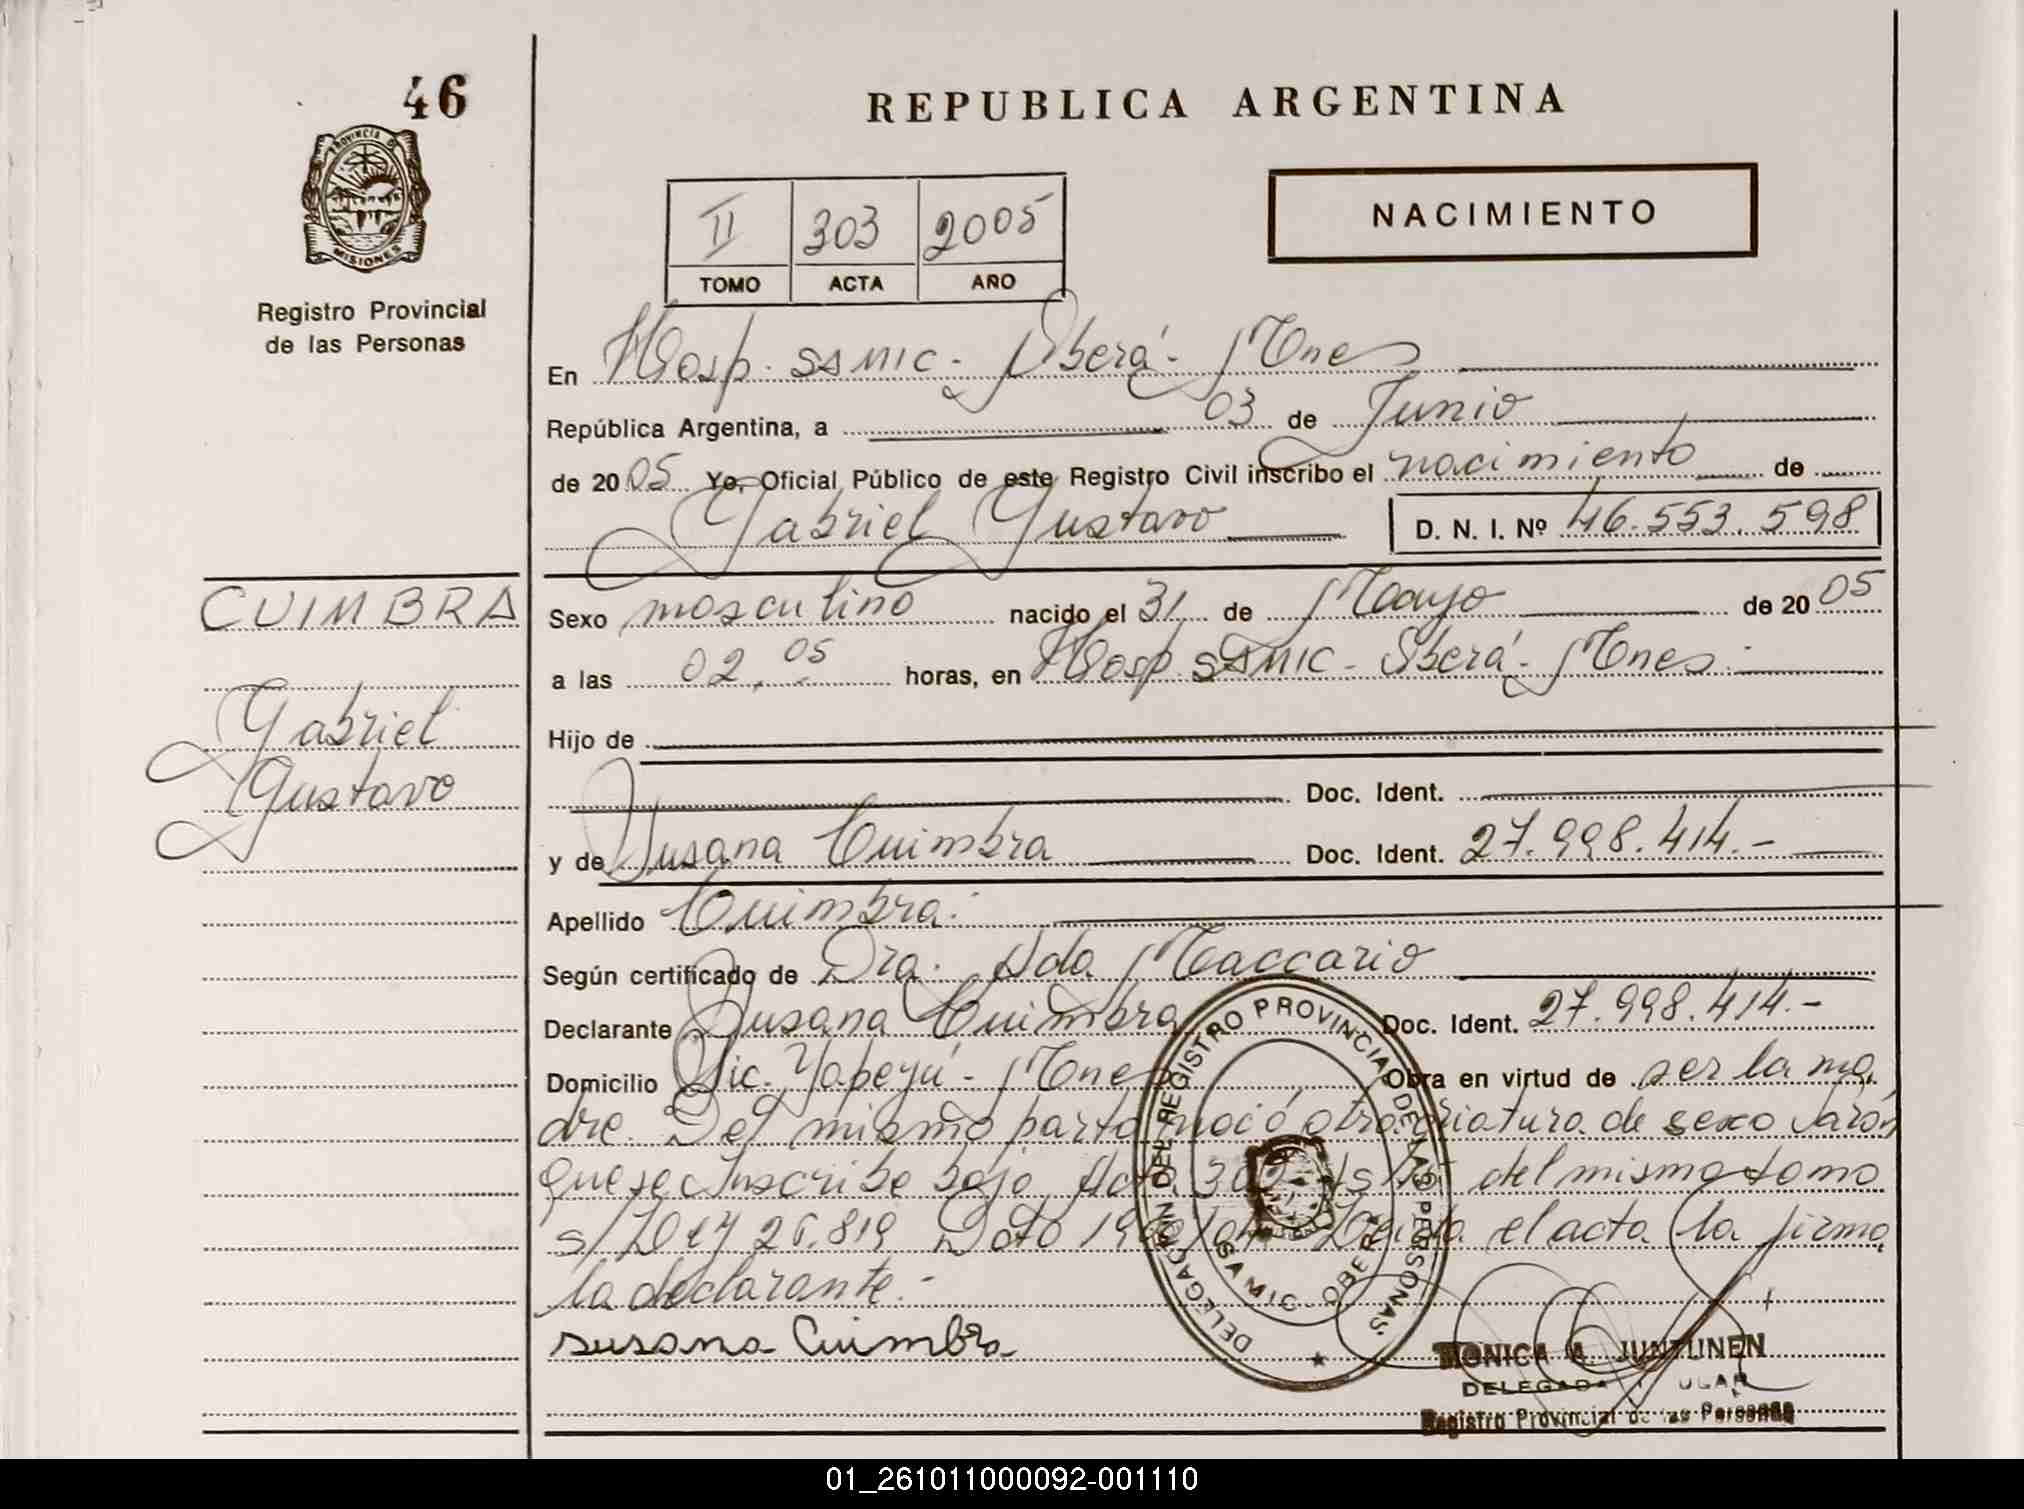 46
REPUBLICA ARGENTINA
PROVINCIA DE
MISIONES
Registro Provincial
de las Personas
NACIMIENTO
II 303 2005
TOMO ACTA AÑO
En Hosp. SSMIC - Oberá - Mnes
República Argentina, a 03 de Junio
de 2005 Yo, Oficial Público de este Registro Civil inscribo el nacimiento de
Gabriel Gustavo D. N. I. Nº 46.553.598
CUIMBRA
Gabriel
Gustavo
Sexo masculino nacido el 31 de Mayo de 2005
a las 02,05 horas, en Hosp. SSMIC - Oberá - Mnes.
Hijo de
Doc. Ident.
y de Susana Cuimbra Doc. Ident. 27.998.414.-
Apellido Cuimbra.
Según certificado de Dra. Ada Maccario
Declarante Susana Cuimbra Doc. Ident. 27.998.414.-
Domicilio Yapeyú - Mnes Obra en virtud de ser la ma
dre. Del mismo parto nació otra criatura de sexo varón
que se inscribe bajo Acta del mismo tomo
s/ 26.819 el acta la firma
la declarante.-
Susana Cuimbra
DELEGACION DEL REGISTRO PROVINCIAL DE LAS PERSONAS
SAMIC - OBERA
MONICA A. JUNTUNEN
DELEGADA
Registro Provincial de las Personas
01_261011000092-001110